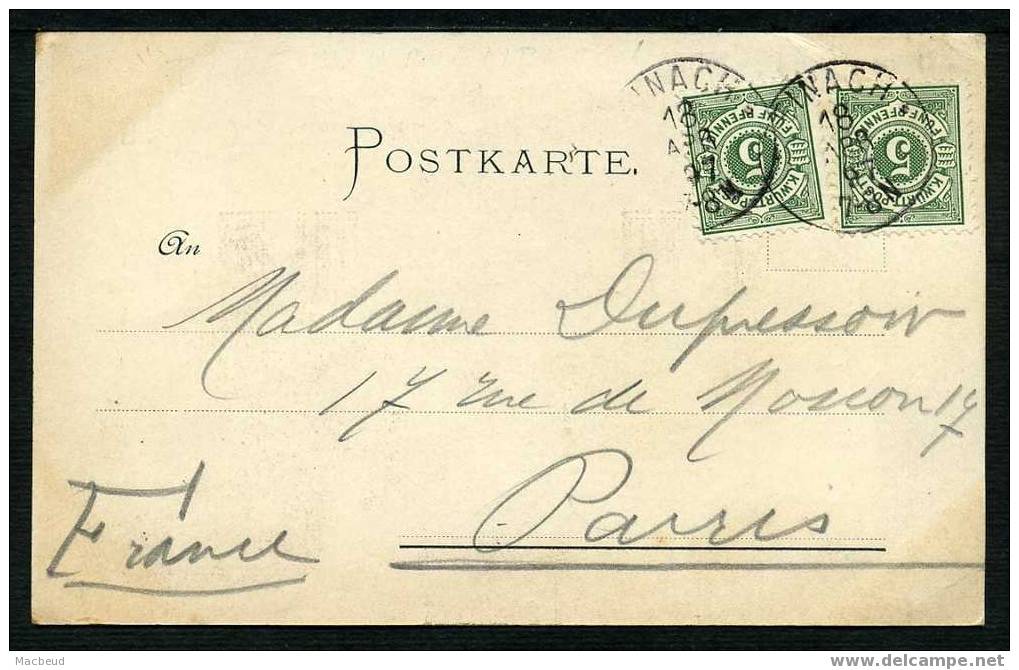 POSTKARTE.
An
Madame Dupressoir
17 rue de Moscou 17
Paris
France
NACH
18
7-8
NACH
18
7-8
FÜNF PFENNIG
5
K.WÜRTT.POST
FÜNF PFENNIG
5
K.WÜRTT.POST
Macbeud
www.delcampe.net